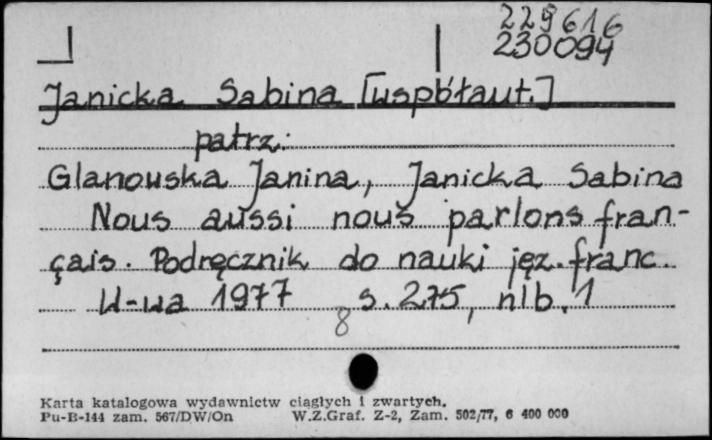 229616
230094
Janicka Sabina [współaut.]
patrz:
Glanowska Janina, Janicka Sabina
Nous aussi nous parlons fran-
çais. Podręcznik do nauki jęz. franc.
W-wa 1977 8 s. 275, nlb. 1
Karta katalogowa wydawnictw ciągłych i zwartych.
Pu-B-144 zam. 567/DW/On W.Z.Graf. Z-2, Zam. 502/77, 6 400 000